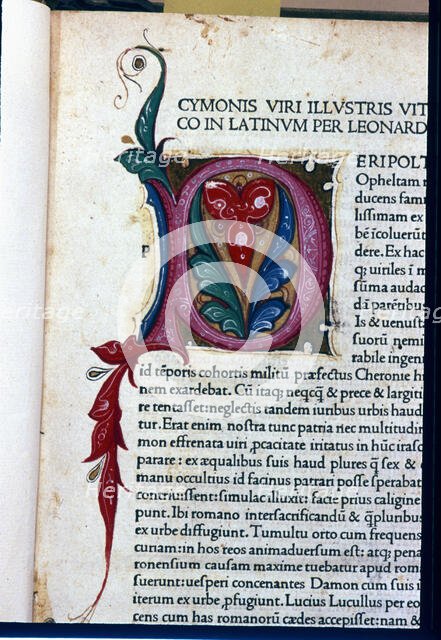 CYMONIS VIRI ILLVSTRIS VIT
CO IN LATINVM PER LEONARD
P
ERIPOLT
Opheltam r
ducens fam
lissimam ex
bē icoluerūt
dere. Ex hac
q; uiriles ī m
suma audac
dā parētibus
Is & uenust
suorū nem
rabile ingen
id tēporis cohortis militū præfectus Cheronę hi
nem exardebat. Cū itaq; neqcq̄ & prece & largiti
re tentasset: neglectis tandem iuribus urbis haud
tur. Erat enim nostra tunc patria nec multitudin
mon effrenata uiri, pcacitate iritatus in hūc irasc
parare: ex æqualibus suis haud plures q̄ sex &
manu occultius id facinus patrari posse sperabat
conciuissent: simulac illuxit: facte prius caligine
punt. Ibi romano intersacrificandū & q̄pluribus
ex urbe diffugiunt. Tumultu orto cum frequens
curiam: in hos reos animaduersum est: atq; pena
ronensium causam maxime tuebatur apud rom
fuerunt: uesperi concenantes Damon cum suis i
iterum ex urbe, pfugiunt. Lucius Lucullus per eo
cens cum has romanorū cædes accepisset: nam &